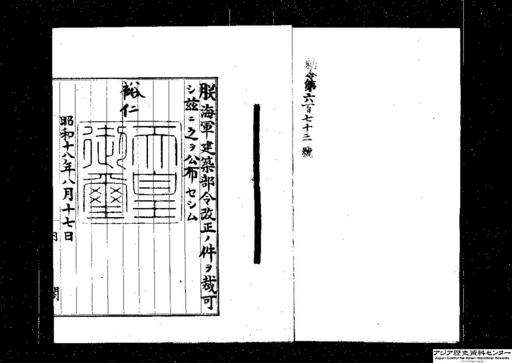 勅令第六百七十三號
朕海軍建築部令改正ノ件ヲ裁可
シ茲ニ之ヲ公布セシム
裕仁
天皇御璽
昭和十八年八月十七日
内
閣
アジア歴史資料センター
Japan Center for Asian Historical Records